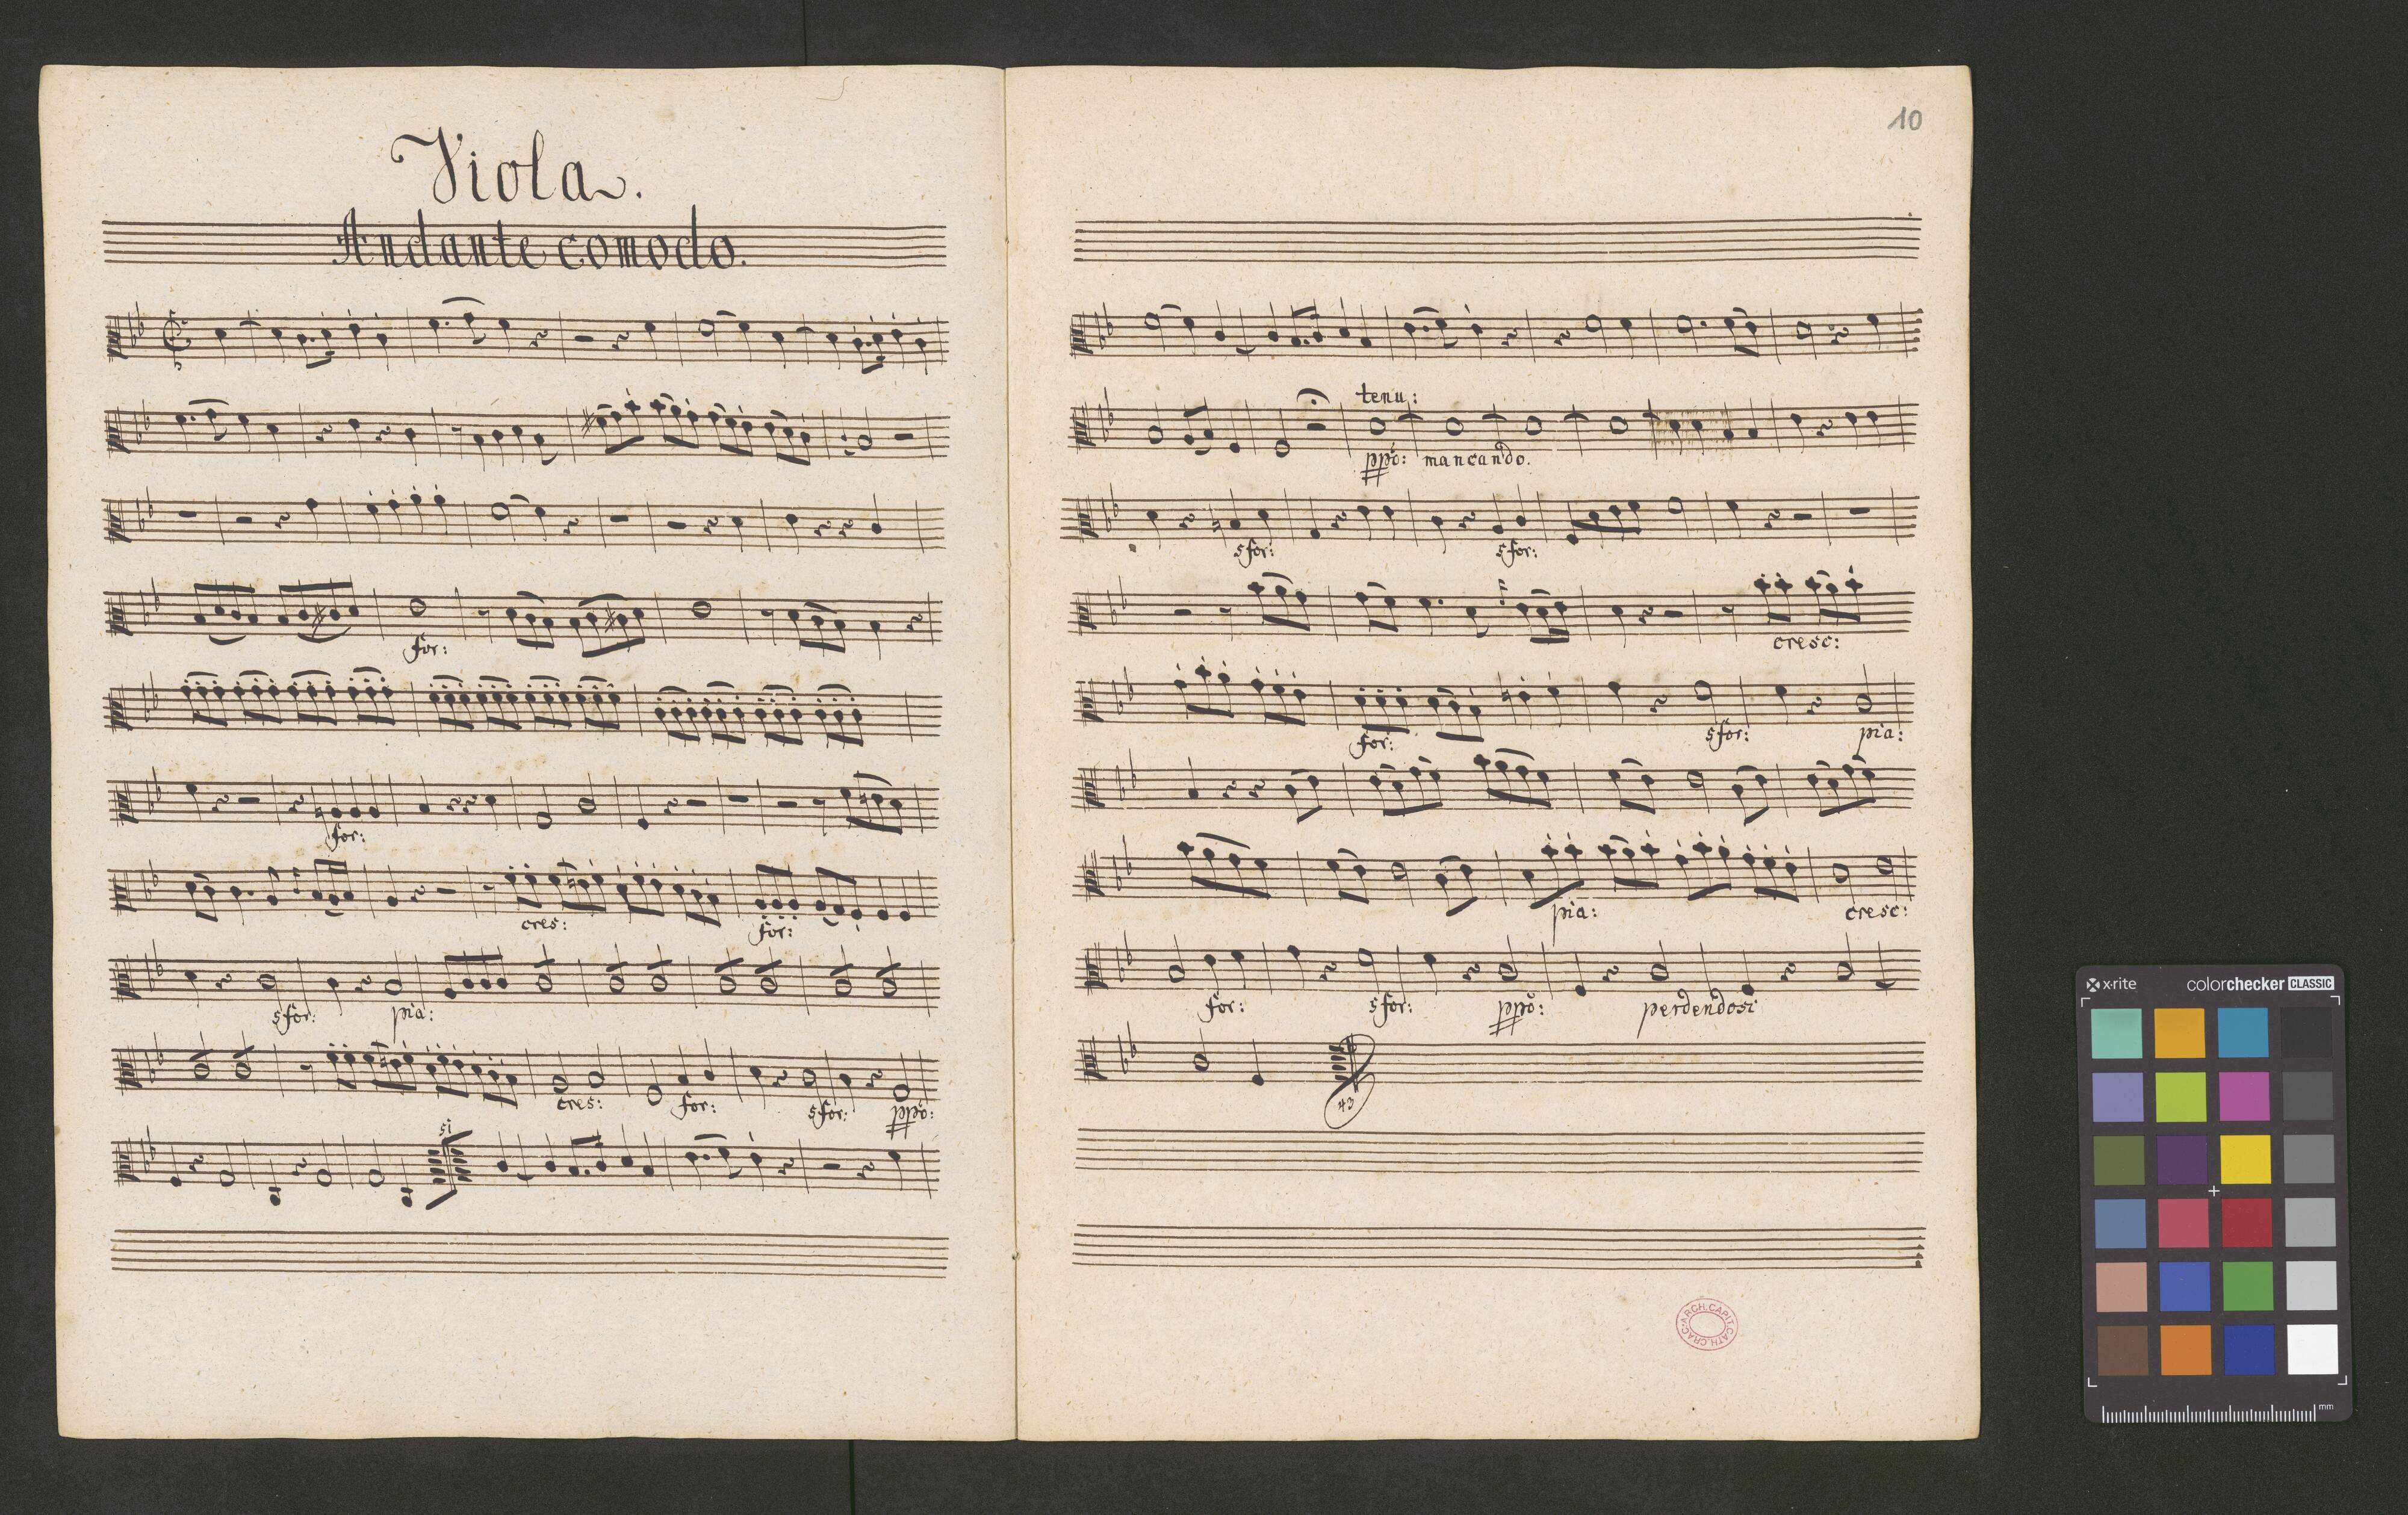 Viola.
Andante comodo.
for:
for:
cres: for:
sfor: pia:
cres: for: sfor: ppo:
si
10
tenu:
ppo: mancando.
sfor: sfor:
cresc:
for: sfor: pia:
pia: cresc:
for: sfor: ppo: perdendosi
43
ARCH. CAPIT. CATH. CRAC.
x-rite colorchecker CLASSIC
mm